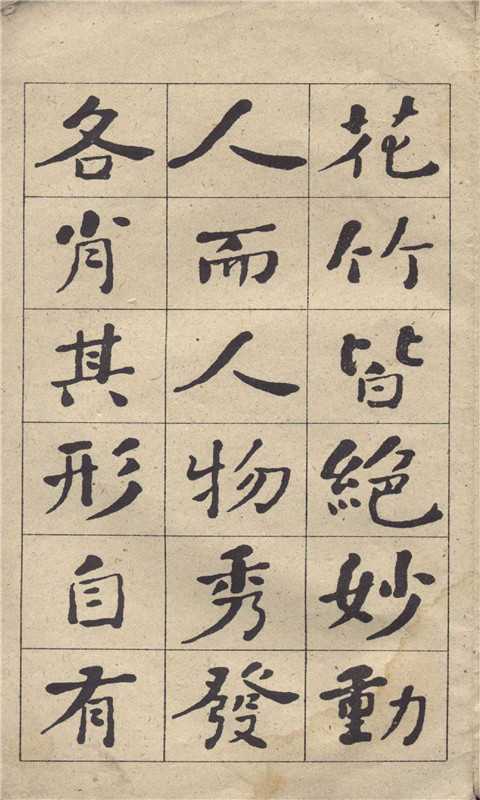 花竹皆絕妙動
人而人物秀發
各肖其形自有